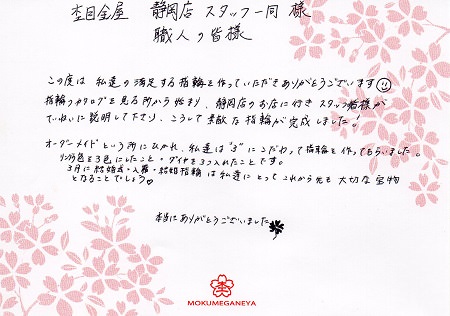 杢目金屋 静岡店 スタッフ一同 様
職人の皆様
この度は 私達の満足する指輪を作っていただきありがとうございます
指輪のカタログを見る所から始まり、静岡店のお店に行き スタッフ皆様が
ていねいに説明して下さり、こうして素敵な指輪が完成しました!
オーダーメイドという所にひかれ、私達は"3"にこだわって指輪を作ってもらいました。
リングの色を3色にしたこと・ダイヤを3つ入れたことです。
3月に結婚式・入籍・結婚指輪は私達にとってこれから先も大切な宝物
となることでしょう♡
本当にありがとうございました
MOKUMEGANEYA